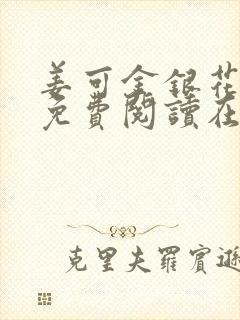 姜可金銀花
免費閱讀在
克里夫羅賓遜